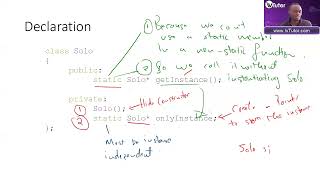 Declaration
① Because we can't
use a static member
in a non-static function
② So we call it without
instantiating Solo
class Solo
{
public:
static Solo* getInstance();
private:
① Solo(); Hide Constructor
② static Solo* onlyInstance;
};
Create Pointer
to store the instance
Must be instance
independent
Solo s;
1vTutor
www.1vTutor.com